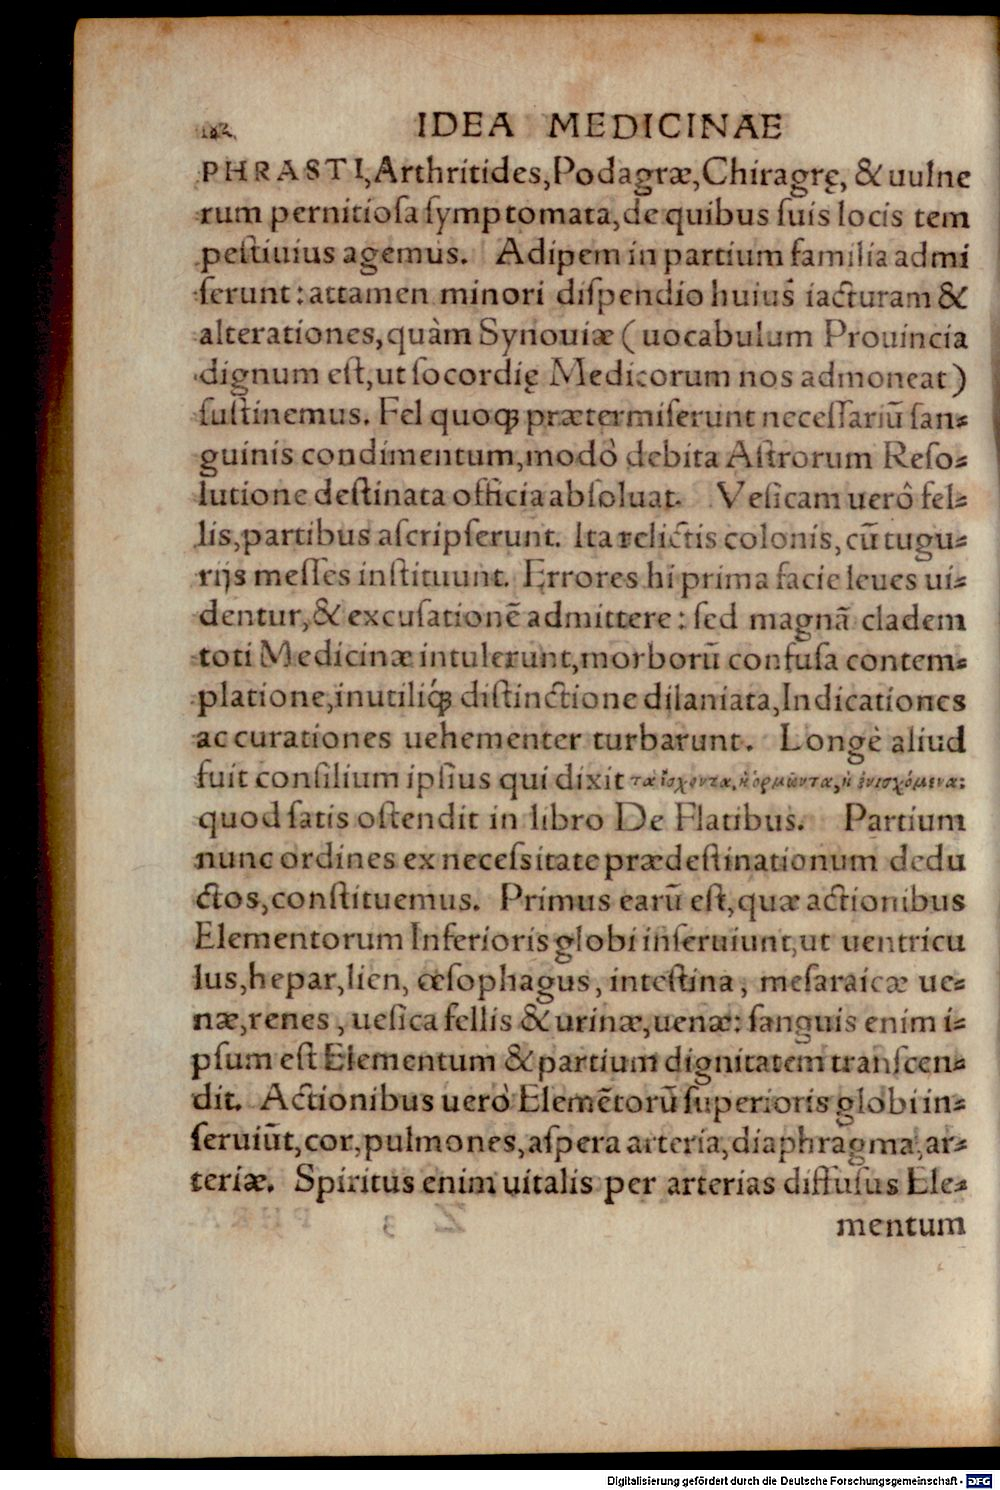 182 IDEA MEDICINAE
PHRASTI, Arthritides, Podagræ, Chiragrę, & uulne
rum pernitiosa symptomata, de quibus suis locis tem
pestiuius agemus. Adipem in partium familia admi
serunt: attamen minori dispendio huius iacturam &
alterationes, quàm Synouiæ (uocabulum Prouincia
dignum est, ut socordię Medicorum nos admoneat)
sustinemus. Fel quoqꝫ prætermiserunt necessariũ san-
guinis condimentum, modò debita Astrorum Reso-
lutione destinata officia absoluat. Vesicam uerò fel-
lis, partibus ascripserunt. Ita relictis colonis, cũ tugu-
rijs messes instituunt. Errores hi prima facie leues ui-
dentur, & excusationẽ admittere: sed magnã cladem
toti Medicinæ intulerunt, morborũ confusa contem-
platione, inutiliqꝫ́ distinctione dilaniata, Indicationes
ac curationes uehementer turbarunt. Longè aliud
fuit consilium ipsius qui dixit τὰ ἴσχοντα, ἢ ὁρμῶντα, ἢ ἐνισχόμενα:
quod satis ostendit in libro De Flatibus. Partium
nunc ordines ex necessitate prædestinationum dedu
ctos, constituemus. Primus earũ est, quæ actionibus
Elementorum Inferioris globi inseruiunt, ut uentricu
lus, hepar, lien, œsophagus, intestina, mesaraicæ ue-
næ, renes, uesica fellis & urinæ, uenæ: sanguis enim i-
psum est Elementum & partium dignitatem transcen-
dit. Actionibus uerò Elemẽtorũ superioris globi in-
seruiũt, cor, pulmones, aspera arteria, diaphragma, ar-
teriæ. Spiritus enim uitalis per arterias diffusus Ele-
mentum
Digitalisierung gefördert durch die Deutsche Forschungsgemeinschaft - DFG